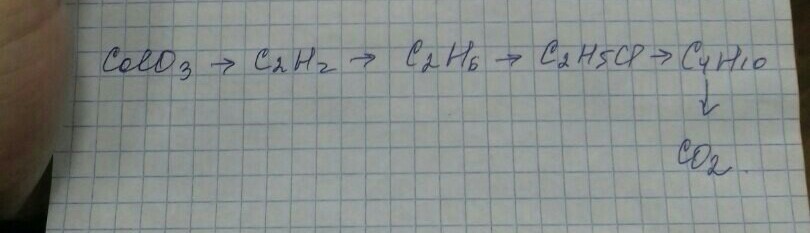 CaCO3 → C2H2 → C2H6 → C2H5Cl → C4H10
↓
CO2